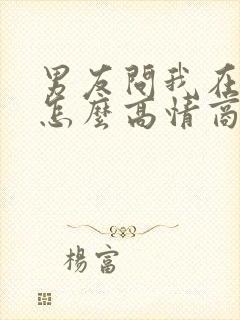 男友問我在
怎麼高情商
楊富